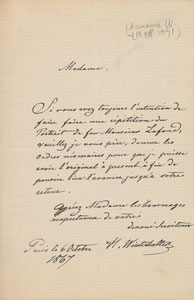 Madame.
Si vous avez toujours l'intention de
faire faire une répétition du
Portrait de feu Monsieur Lafond,
veuillez je vous prie, donner les
ordres nécessaires pour que je puisse
avoir l'original à présent, afin de
pouvoir l'avancer jusqu'à votre
retour.
Agréez Madame les hommages
respectueux de votre
dévoué Serviteur
Paris le 6 Octobre
1867